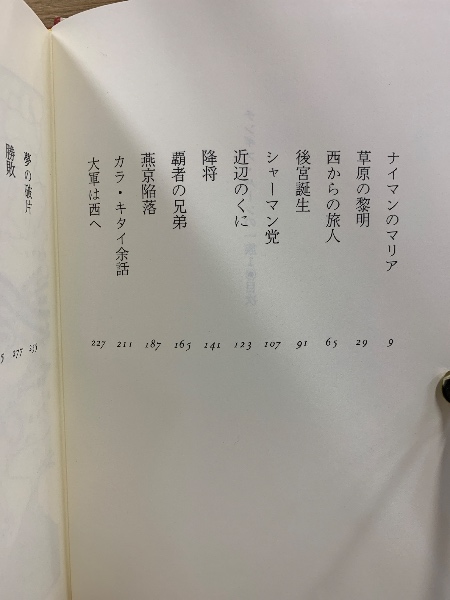 ナイマンのマリア 9
草原の黎明 29
西からの旅人 65
後宮誕生 91
シャーマン党 107
近辺のくに 123
降将 141
覇者の兄弟 165
燕京陥落 187
カラ・キタイ余話 211
大軍は西へ 227
夢の破片
勝敗
277